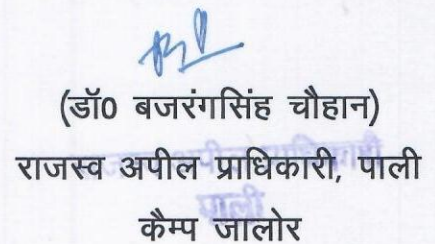 (डॉ0 बजरंगसिंह चौहान)
राजस्व अपील प्राधिकारी, पाली
पाली
कैम्प जालोर